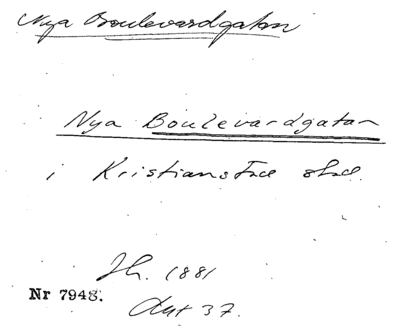 Nya Boulevardgatan
Nya Boulevardgatan
i Kristianstad stad.
Jh. 1881
Nr 7948.
Art 37.